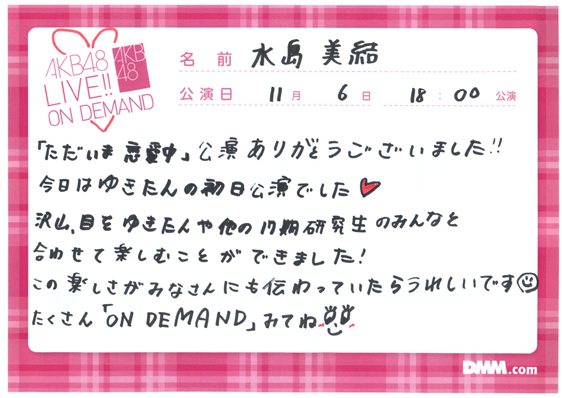 AKB48
LIVE!!
ON DEMAND
AKB
48
名前 水島 美結
公演日 11月 6日 18:00 公演
「ただいま 恋愛中」公演 ありがとうございました!!
今日は ゆきたんの初日公演でした
沢山、目を ゆきたんや他の17期研究生のみんなと
合わせて楽しむことができました!
この楽しさがみなさんにも伝わっていたらうれしいです
たくさん「ON DEMAND」みてね
DMM.com